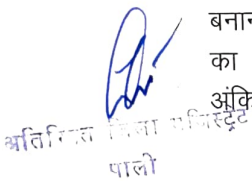 बनान
का
अंकि
अतिरिक्त जिला मजिस्ट्रेट
पाली